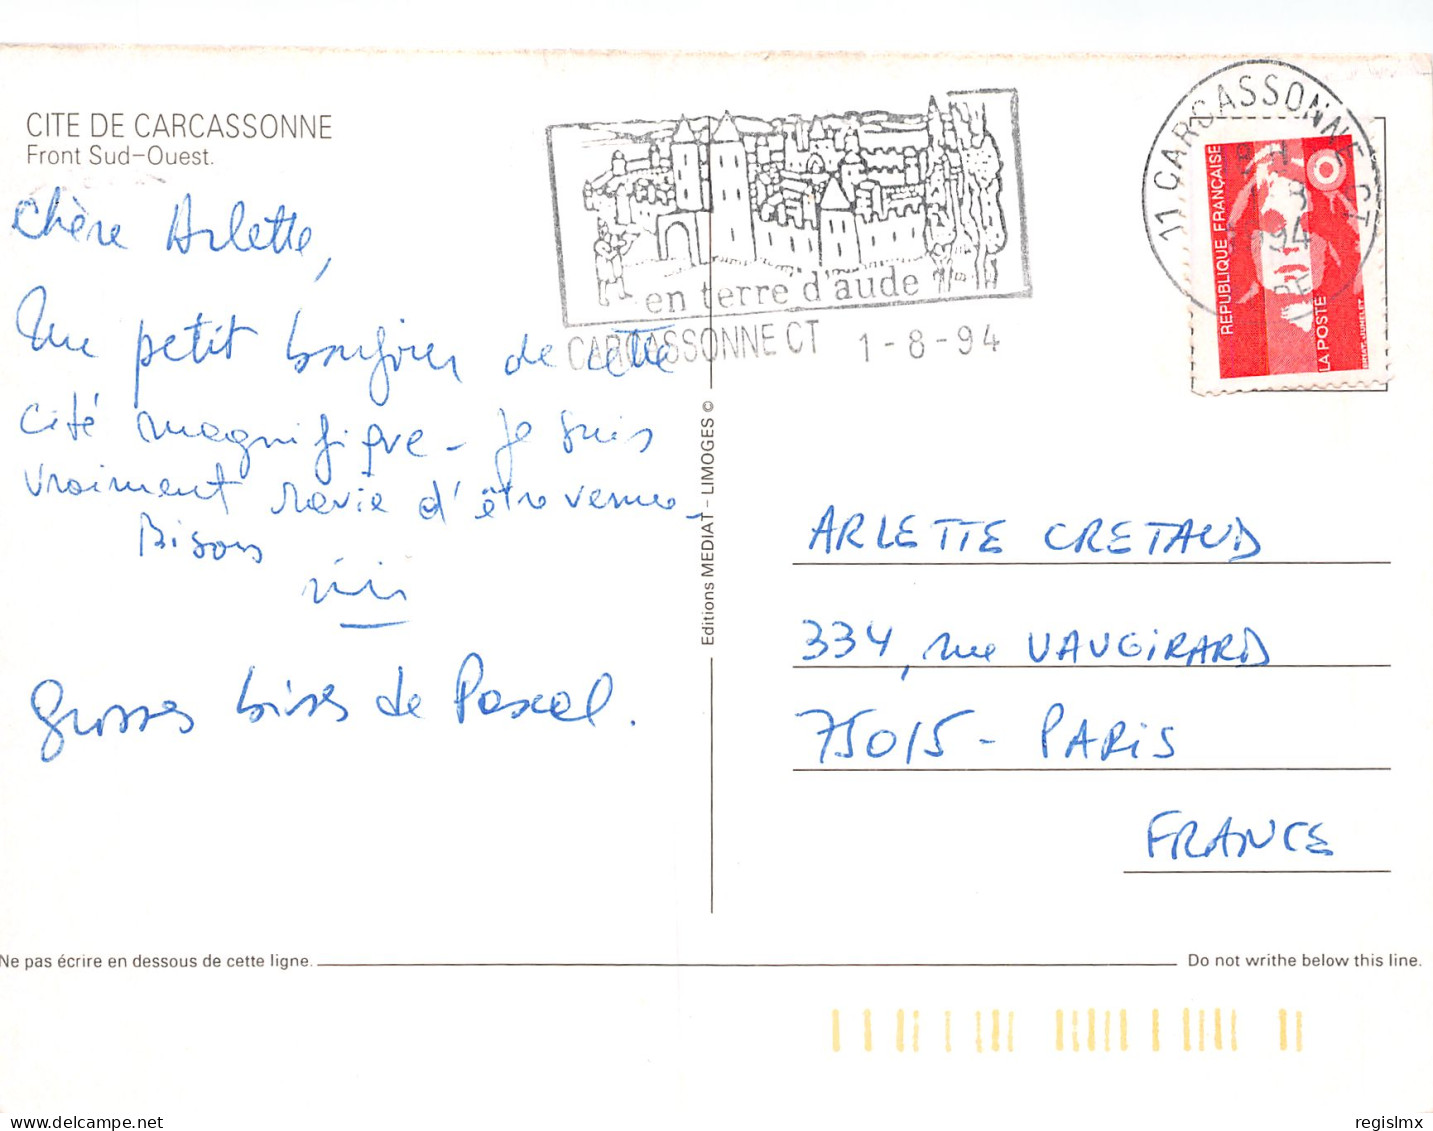 CITE DE CARCASSONNE
Front Sud-Ouest.
Chère Arlette,
Un petit bonjour de cette
cité magnifique - Je suis
vraiment ravie d'être venue -
Bisous
grosses bises de Pascal.
en terre d'aude
CARCASSONNE CT 1-8-94
11 CARCASSONNE CT
94
REPUBLIQUE FRANÇAISE
LA POSTE
Editions MEDIAT - LIMOGES ©
ARLETTE CRETAUD
334, rue VAUGIRARD
75015 - PARIS
FRANCE
Ne pas écrire en dessous de cette ligne.
Do not writhe below this line.
regislmx